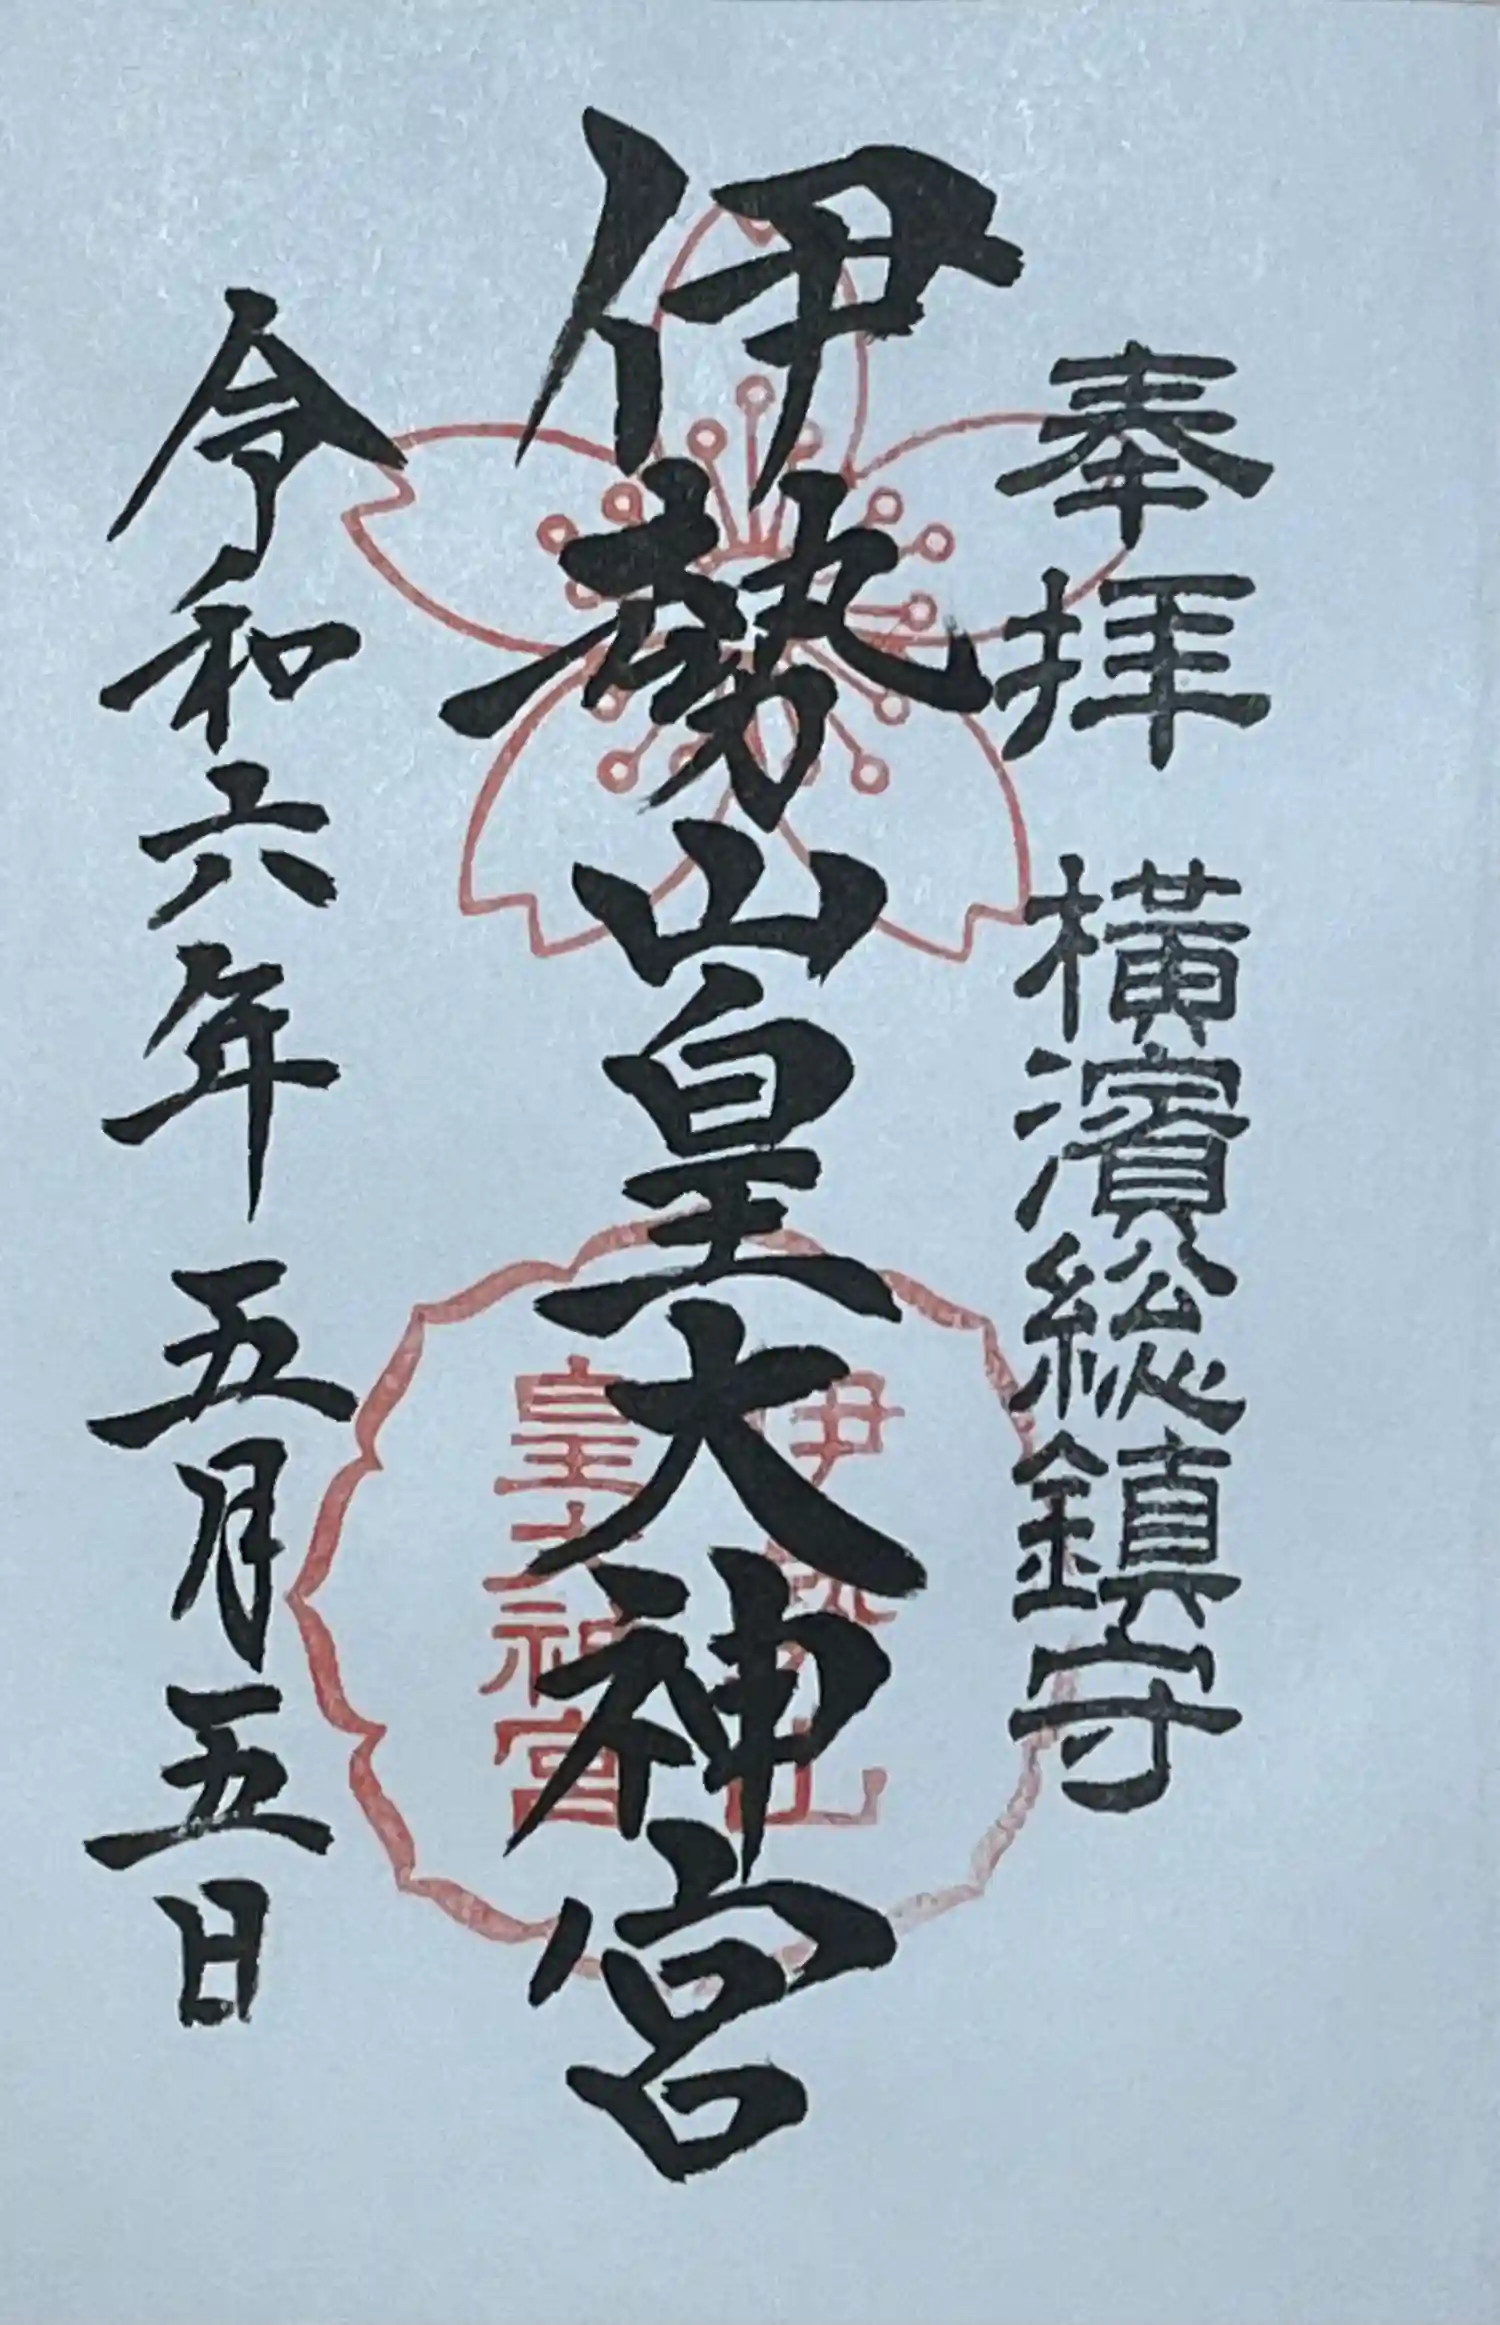 奉拝 横濱総鎮守
伊勢山皇大神宮
伊勢山
皇大神宮
令和六年五月五日